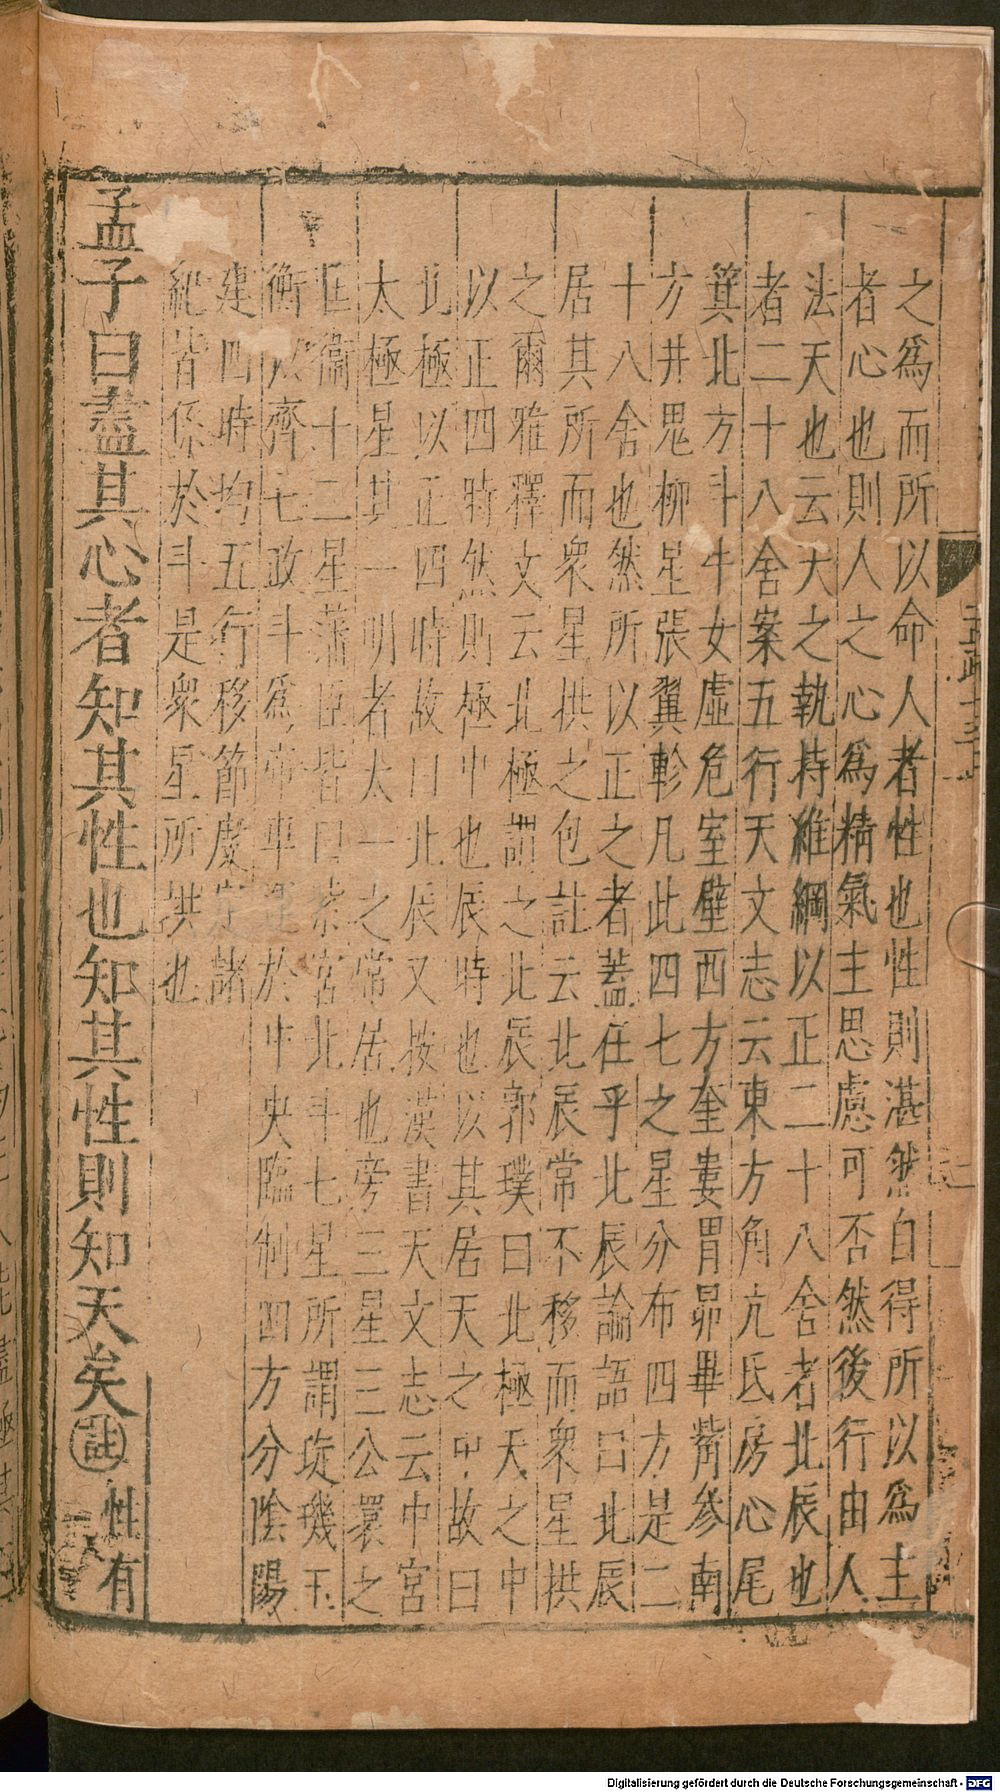 之爲而所以命人者性也性則湛然自得所以爲主
者心也則人之心爲精氣主思慮可否然後行由人
法天也云天之執持維綱以正二十八舍者北辰也
者二十八舍案五行天文志云東方角亢氐房心尾
箕北方斗牛女虛危室壁西方奎婁胃昴畢觜參南
方井鬼柳星張翼軫凡此四七之星分布四方是二
十八舍也然所以正之者蓋在乎北辰論語曰北辰
居其所而衆星拱之包註云北辰常不移而衆星拱
之爾雅釋文云北極謂之北辰郭璞曰北極天之中
以正四時然則極中也辰時也以其居天之中故曰
北極以正四時故曰北辰又按漢書天文志云中宮
太極星其一明者太一之常居也旁三星三公環之
匡衞十二星藩臣皆曰紫宮北斗七星所謂璇璣玉
衡以齊七政斗爲帝車運於中央臨制四方分陰陽
建四時均五行移節度定諸
紀皆係於斗是衆星所拱也
孟子曰盡其心者知其性也知其性則知天矣註性有
Digitalisierung gefördert durch die Deutsche Forschungsgemeinschaft - DFG